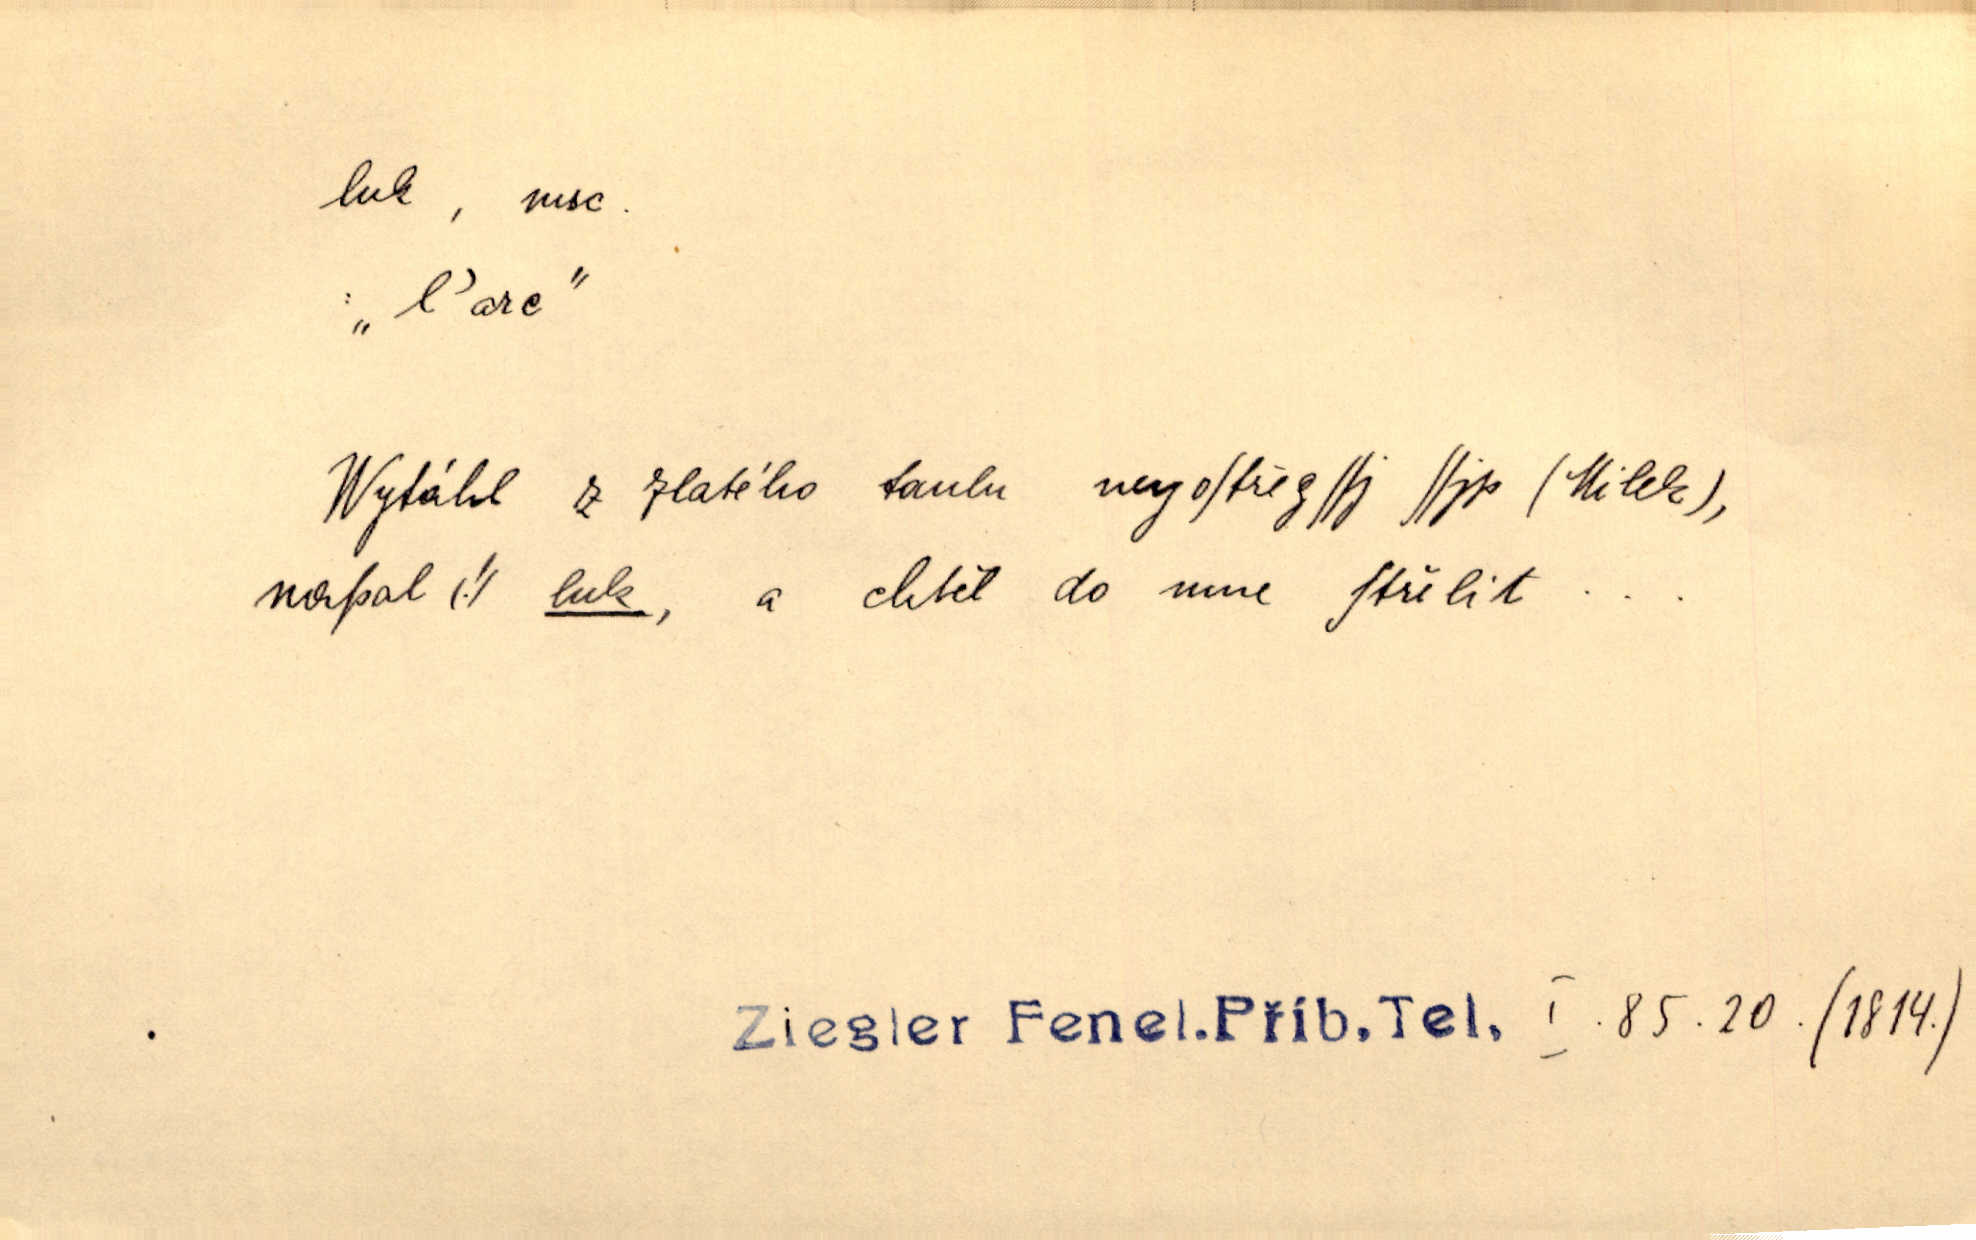 luk, msc.
: „l'arc"
Wytáhl z zlatého taulu neyoſtřegſſj ſſjp (Milek),
napal (!) luk, a chtěl do mne ſtřelit . . .
Ziegler Fenel.Příb.Tel. I.85.20.(1814.)